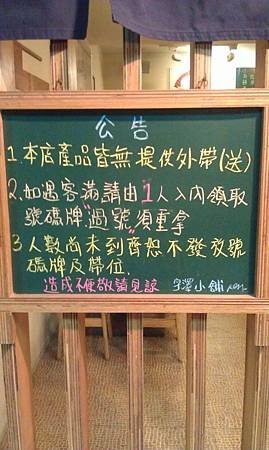 公告
1.本店產品皆無提供外帶(送)
2.如遇客滿請由1人入內領取
號碼牌"過號"須重拿
3.人數尚未到齊恕不發放號
碼牌及帶位.
造成不便敬請見諒 子澤小舖